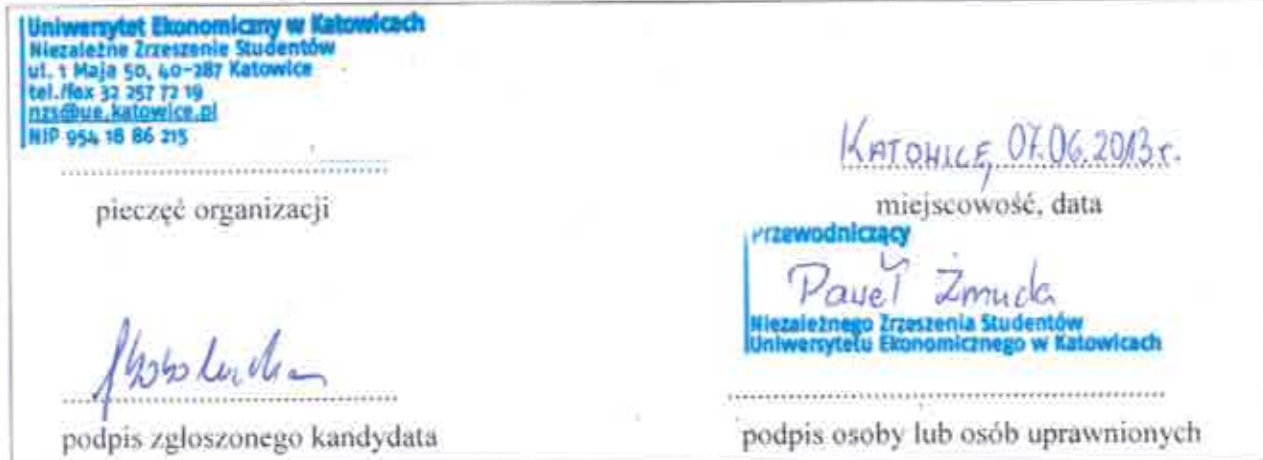 Uniwersytet Ekonomiczny w Katowicach
Niezależne Zrzeszenie Studentów
ul. 1 Maja 50, 40-287 Katowice
tel./fax 32 257 72 19
nzs@ue.katowice.pl
NIP 954 18 86 215
pieczęć organizacji
KATOWICE, 07.06.2013 r.
miejscowość, data
Przewodniczący
Paweł Żmuda
Niezależnego Zrzeszenia Studentów
Uniwersytetu Ekonomicznego w Katowicach
podpis zgłoszonego kandydata
podpis osoby lub osób uprawnionych